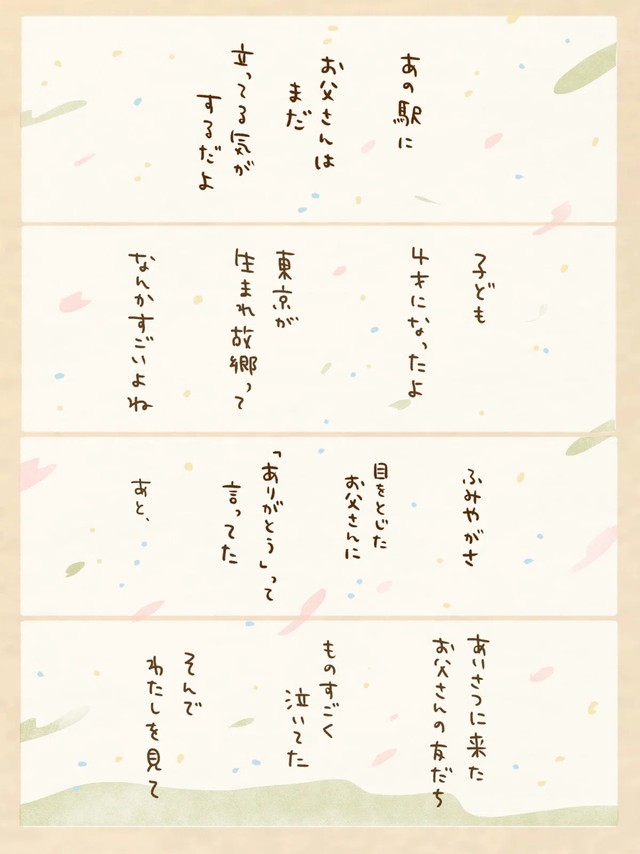 あの駅に
お父さんは
まだ
立ってる気が
するだよ
子ども
4才になったよ
東京が
生まれ故郷って
なんかすごいよね
ふみやがさ
目をとじた
お父さんに
「ありがとう」って
言ってた
あと、
あいさつに来た
お父さんの友だち
ものすごく
泣いてた
そんで
わたしを見て